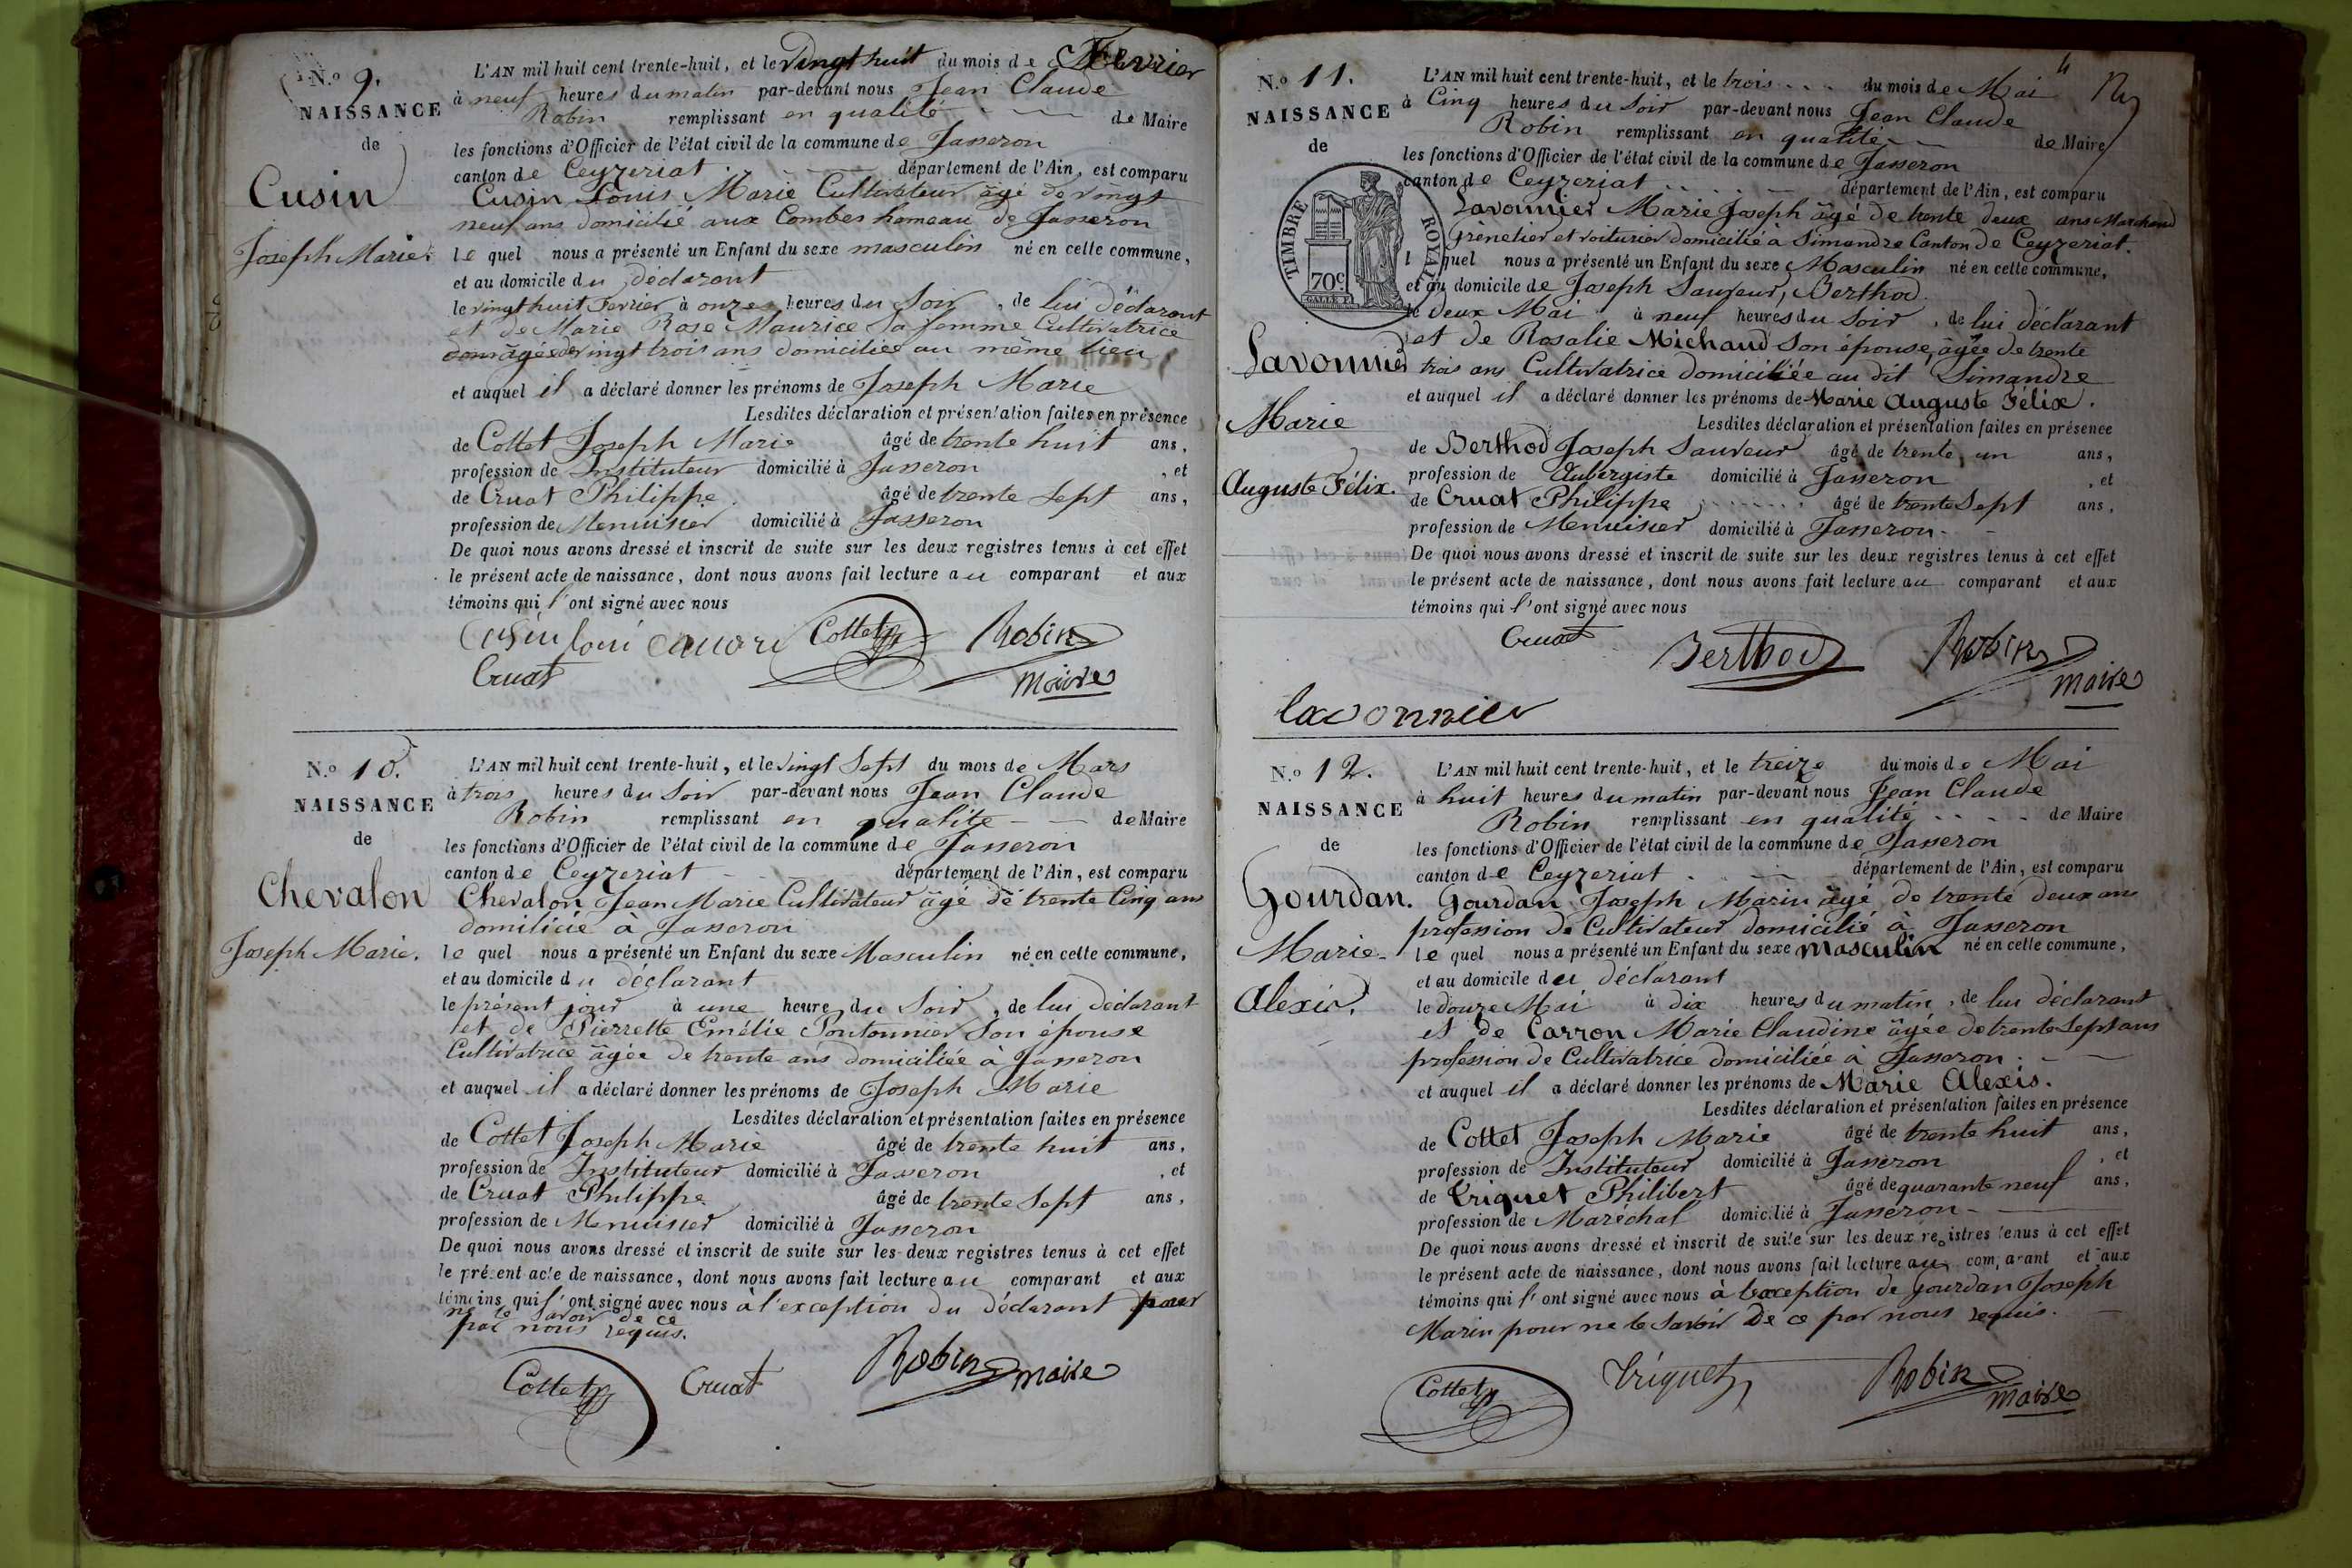 N.o 9.
NAISSANCE
de
Cusin
Joseph Marie.
L'AN mil huit cent trente-huit, et le Vingt huit du mois de Fevrier
à neuf heures du matin par-devant nous Jean Claude
Robin remplissant en qualité de Maire
les fonctions d'Officier de l'état civil de la commune de Jasseron
canton de Ceyzeriat département de l'Ain, est comparu
Cusin Louis Marie Cultivateur âgé de vingt
neuf ans domicilié aux Combes hameau de Jasseron
le quel nous a présenté un Enfant du sexe masculin né en cette commune,
et au domicile du déclarant
le vingt huit Fevrier à onze heures du Soir, de lui déclarant
et de Marie Rose Maurice Sa femme Cultivatrice
âgée de vingt trois ans domiciliée au même lieu
et auquel il a déclaré donner les prénoms de Joseph Marie
Lesdites déclaration et présentation faites en présence
de Cottet Joseph Marie âgé de trente huit ans,
profession de Instituteur domicilié à Jasseron, et
de Cruat Philippe âgé de trente Sept ans,
profession de Menuisier domicilié à Jasseron
De quoi nous avons dressé et inscrit de suite sur les deux registres tenus à cet effet
le présent acte de naissance, dont nous avons fait lecture au comparant et aux
témoins qui l'ont signé avec nous
Cottet Robin
Cruat Maire
N.o 10.
NAISSANCE
de
Chevalon
Joseph Marie.
L'AN mil huit cent trente-huit, et le Vingt Sept du mois de Mars
à trois heures du Soir par-devant nous Jean Claude
Robin remplissant en qualite de Maire
les fonctions d'Officier de l'état civil de la commune de Jasseron
canton de Ceyzeriat département de l'Ain, est comparu
Chevalon Jean Marie Cultivateur âgé de trente Cinq ans
domilicié à Jasseron
le quel nous a présenté un Enfant du sexe Masculin né en cette commune,
et au domicile du déclarant
le présent jour à une heure du Soir, de lui déclarant
et de Pierrette Emélie Pontonnier Son épouse
Cultivatrice âgée de trente ans domiciliée à Jasseron
et auquel il a déclaré donner les prénoms de Joseph Marie
Lesdites déclaration et présentation faites en présence
de Cottet Joseph Marie âgé de trente huit ans,
profession de Instituteur domicilié à Jasseron, et
de Cruat Philippe âgé de trente Sept ans,
profession de Menuisier domicilié à Jasseron
De quoi nous avons dressé et inscrit de suite sur les deux registres tenus à cet effet
le présent acte de naissance, dont nous avons fait lecture au comparant et aux
témoins qui l'ont signé avec nous à l'exception du déclarant pour
ne le savoir de ce
par nous requis.
Cottet Cruat Robin maire
4
N.o 11.
NAISSANCE
de
TIMBRE ROYAL
70c
Lavonnier
Marie
Auguste Félix.
L'AN mil huit cent trente-huit, et le trois du mois de Mai
à Cinq heures du Soir par-devant nous Jean Claude
Robin remplissant en qualité de Maire
les fonctions d'Officier de l'état civil de la commune de Jasseron
canton de Ceyzeriat département de l'Ain, est comparu
Lavonnier Marie Joseph âgé de trente deux ans Marchand
grenetier et voiturier domicilié à Simandre Canton de Ceyzeriat.
l quel nous a présenté un Enfant du sexe Masculin né en cette commune,
et au domicile de Joseph Sauveur, Berthod
le deux Mai à neuf heures du Soir, de lui déclarant
et de Rosalie Michaud Son épouse, âgée de trente
trois ans Cultivatrice domiciliée au dit Simandre
et auquel il a déclaré donner les prénoms de Marie Auguste Félix.
Lesdites déclaration et présentation faites en présence
de Berthod Joseph Sauveur âgé de trente un ans,
profession de Aubergiste domicilié à Jasseron, et
de Cruat Philippe âgé de trente Sept ans,
profession de Menuisier domicilié à Jasseron
De quoi nous avons dressé et inscrit de suite sur les deux registres tenus à cet effet
le présent acte de naissance, dont nous avons fait lecture au comparant et aux
témoins qui l'ont signé avec nous
Cruat Berthod Robin
maire
lavonnier
N.o 12.
NAISSANCE
de
Gourdan.
Marie
Alexis.
L'AN mil huit cent trente-huit, et le treize du mois de Mai
à huit heures du matin par-devant nous Jean Claude
Robin remplissant en qualité de Maire
les fonctions d'Officier de l'état civil de la commune de Jasseron
canton de Ceyzeriat département de l'Ain, est comparu
Gourdan Joseph Marin âgé de trente deux ans
profession de Cultivateur domicilié à Jasseron
le quel nous a présenté un Enfant du sexe Masculin né en cette commune,
et au domicile du déclarant
le douze Mai à dix heures du matin, de lui déclarant
et de Carron Marie Claudine âgée de trente Sept ans
profession de Cultivatrice domiciliée à Jasseron.
et auquel il a déclaré donner les prénoms de Marie Alexis.
Lesdites déclaration et présentation faites en présence
de Cottet Joseph Marie âgé de trente huit ans,
profession de Instituteur domicilié à Jasseron, et
de Triquet Philibert âgé de quarante neuf ans,
profession de Maréchal domicilié à Jasseron
De quoi nous avons dressé et inscrit de suite sur les deux registres tenus à cet effet
le présent acte de naissance, dont nous avons fait lecture au comparant et aux
témoins qui l'ont signé avec nous à l'exception de Gourdan Joseph
Marin pour ne le Savoir De ce par nous requis.
Cottet Triquet Robin
maire